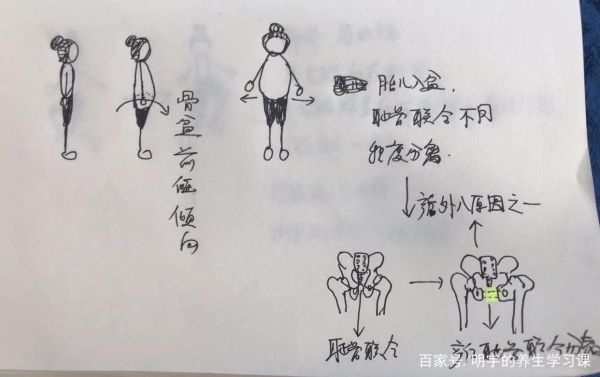 骨盆前倾倾向
胎儿入盆,
耻骨联合不同
程度分离.
外八原因之一
耻骨联合
耻骨联合分离
百家号·明宇的养生学习课